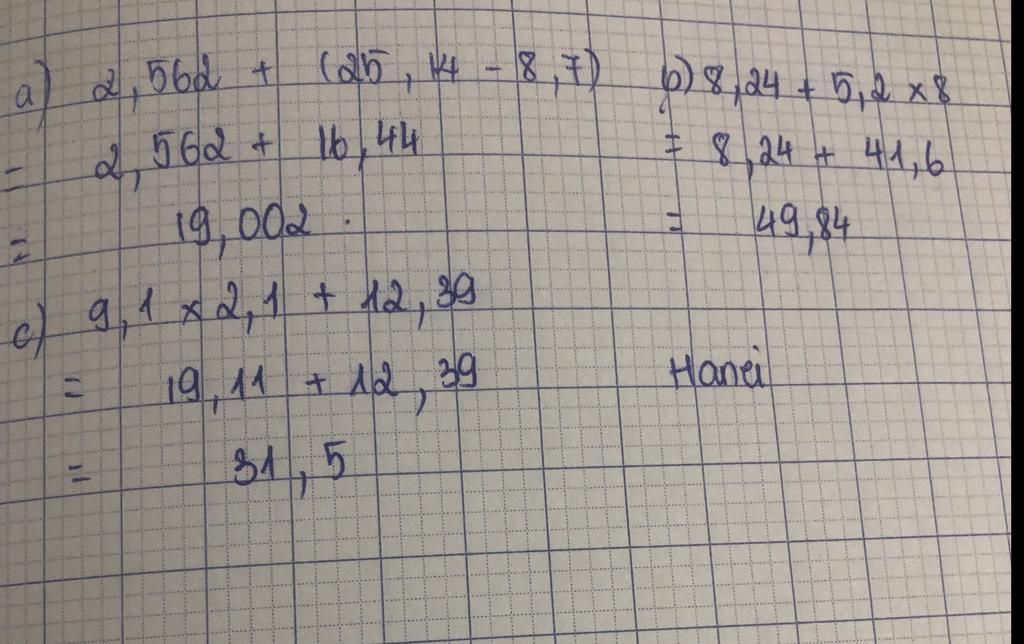 a) 2,562 + (25,14 - 8,7)
= 2,562 + 16,44
= 19,002.
b) 8,24 + 5,2 × 8
= 8,24 + 41,6
= 49,84
c) 9,1 × 2,1 + 12,39
= 19,11 + 12,39
= 31,5
Hanei